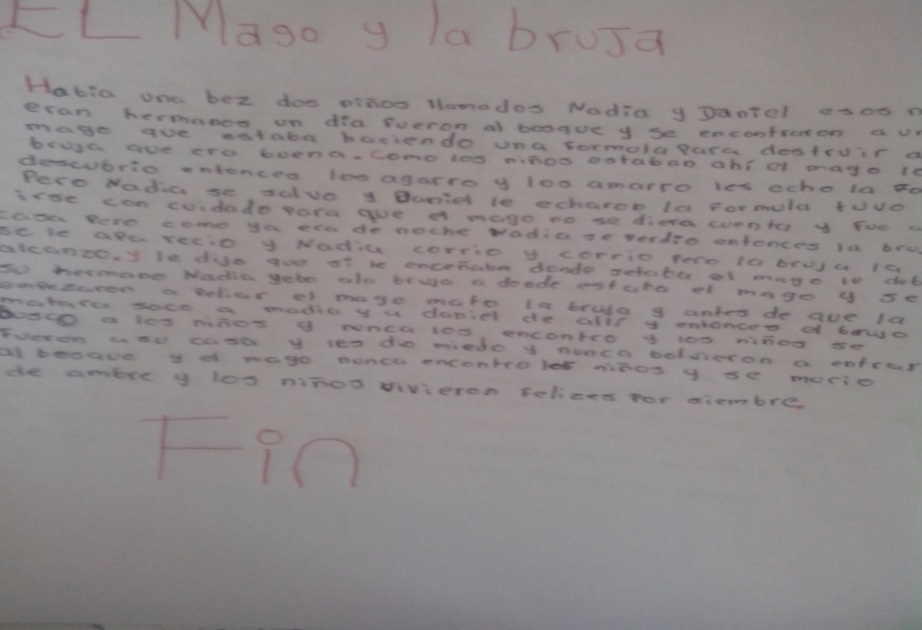 EL Mago y la bruja
Habia una bez dos niños llamados Nadia y Daniel esos
eran hermanos un dia fueron al bosque y se encontraron a
mago que estaba haciendo una formula para destruir a
bruja que era buena. Como los niños estaban ahi el mago
descubrio entonces los agarro y los amarro les echo la
Pero Nadia se salvo y Daniel le echaron la Formula tuvo
irse con cuidado para que el mago no se diera cuenta y fue
casa Pero como ya era de noche Nadia se perdio entonces la
se le recio y Nadia corrio y corrio Pero la bruja la
alcanzo. y le dijo que si le enceñaba donde estaba el mago le
su hermano Nadia yebo ala bruja a donde estaba el mago y se
empezaron a peliar el mago mato la bruja y antes de que la
matara saco a nadia y a daniel de alli y entonces el
busco a los niños y nunca los encontro y los niños se
fueron asu casa y les dio miedo y nunca bolvieron a entrar
al bosque y el mago nunca encontro los niños y se morio
de ambre y los niños vivieron felices por siembre
Fin